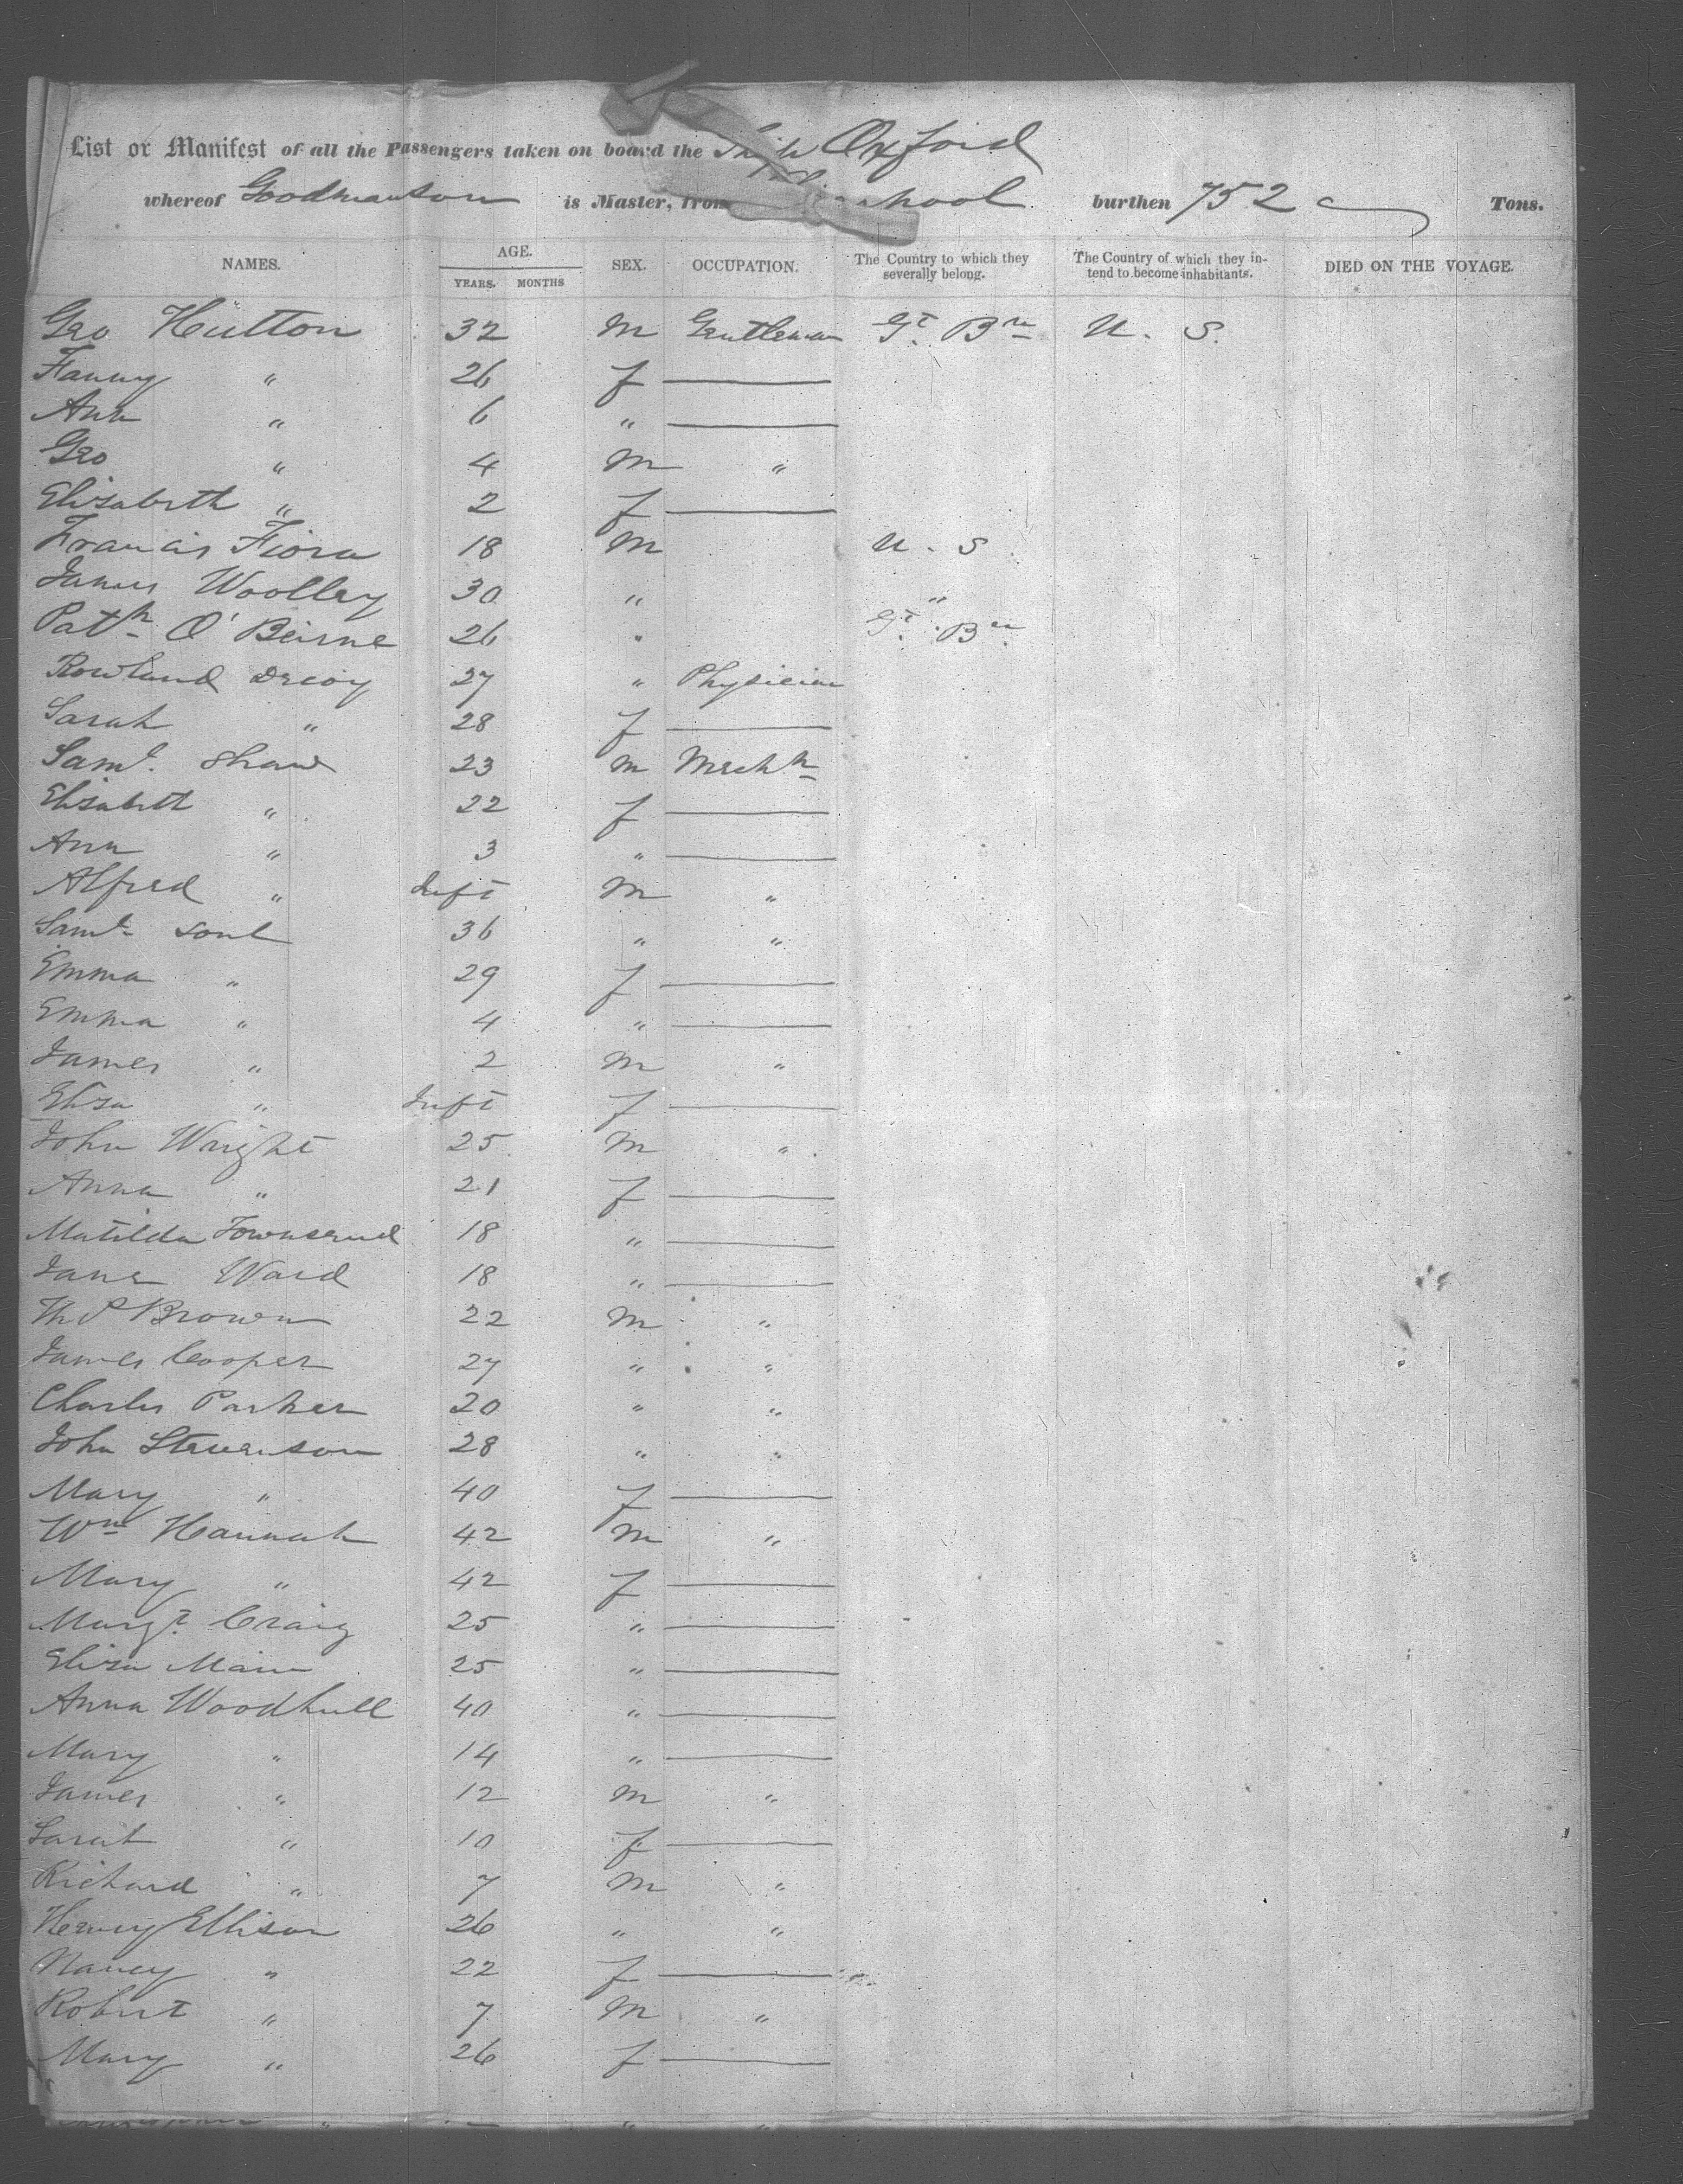 List or Manifest of all the Passengers taken on board the Ship Oxford
whereof Goodmanson is Master, from burthen 752 Tons.
NAMES. AGE. SEX. OCCUPATION. The Country to which they severally belong. The Country of which they intend to become inhabitants. DIED ON THE VOYAGE.
YEARS. MONTHS
Geo Hutton 32 M Gentleman Gt. Brn U. S.
Fanny " 26 f
Ann " 6 "
Geo " 4 M "
Elizabeth " 2 f
Francis Fiora 18 M U. S
James Woolley 30 " "
Patk O'Beirne 26 " Gt. Brn
Rowland 27 " Physician
Sarah " 28 f
Saml. Shaw 23 m Mechk
Elizabeth " 22 f
Ann " 3 "
Alfred " Inft M "
Saml Soul 36 " "
Emma " 29 f
Emma " 4 "
James " 2 M "
Eliza " Inft f
John Wright 25 M "
Anna " 21 f
Matilda Townsend 18 "
Jane Ward 18 "
Th P Brown 22 M "
James Cooper 27 " "
Charles Parker 20 " "
John Stevenson 28 " "
Mary " 40 f
Wm Hannah 42 M "
Mary " 42 f
Margt. Craig 25 "
Eliza Main 25 "
Anna Woodhull 40 "
Mary " 14 "
James " 12 M "
Sarah " 10 f
Richard " 7 M "
Henry Ellison 26 " "
Nancy " 22 f
Robert " 7 M "
Mary " 26 f